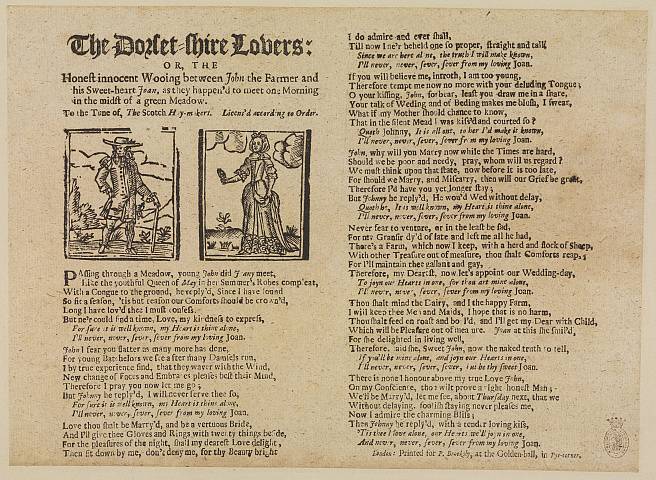 The Dorset-shire Lovers:
OR, THE
Honest innocent Wooing between John the Farmer and
his Sweet-heart Joan, as they happen'd to meet one Morning
in the midst of a green Meadow.
To the Tune of, The Scotch Hay-makers. Licens'd according to Order.
PAssing through a Meadow, young John did Joan meet,
Like the youthful Queen of May in her Summer's Robes compleat,
With a Congue to the ground, he reply'd, Since I have found
So fit a season, 'tis but reason our Comforts should be crown'd,
Long I have lov'd thee I must confess.
But ne'r could find a time, Love, my kindness to express,
For sure it is well known, my Heart is thine alone,
I'll never, never, sever, sever from my loving Joan.
John I fear you flatter as many more has done,
For young Batchelors we see after many Damsels run,
I by true experience find, that they waver with the Wind,
New change of Faces and Embraces pleases best their Mind,
Therefore I pray you now let me go;
But Johnny he reply'd, I will never serve thee so,
For sure it is well known, my Heart is thine alone,
I'll never, never, sever, sever from my loving Joan.
Love thou shalt be Marry'd, and be a vertuous Bride,
And I'll give thee Gloves and Rings with twenty things beside,
For the pleasures of the night, shall my dearest Love delight,
Then sit down by me, don't deny me, for thy Beauty bright
I do admire and ever shall,
Till now I ne'r beheld one so proper, straight and tall,
Since we are here alone, the truth I will make known,
I'll never, never, sever, sever from my loving Joan.
If you will believe me, introth, I am too young,
Therefore tempt me now no more with your deluding Tongue;
O your kissing, John, forbear, least you draw me in a snare,
Your talk of Weding and of Beding makes me blush, I swear,
What if my Mother should chance to know,
That in the silent Mead I was kiss'd and courted so?
Quoth Johnny, It is all out, to her I'd make it known,
I'll never, never, sever, sever from my loving Joan.
John, why will you Marry now while the Times are hard,
Should we be poor and needy, pray, whom will us regard?
We must think upon that state, now before it is too late,
For should we Marry, and Miscarry, then will our Grief be great,
Therefore I'd have you yet longer stay;
But Johnny he reply'd, He wou'd Wed without delay,
Quoth he, It is well known, my Heart is thine alone,
I'll never, never, sever, sever from my loving Joan.
Never fear to venture, or in the least be sad,
For my Gransir dy'd of late and left me all he had,
There's a Farm, which now I keep, with a herd and flock of Sheep,
With other Treasure out of measure, thou shalt Comforts reap;
For I'll maintain thee gallant and gay,
Therefore, my Dearest, now let's appoint our Wedding-day,
To joyn our Hearts in one, for thou art mine alone,
I'll never, never, sever, sever from my loving Joan.
Thou shalt mind the Dairy, and I the happy Farm,
I will keep thee Men and Maids, I hope that is no harm,
Thou shalt feed on roast and boil'd, and I'll get my Dear with Child,
Which will be Pleasure out of measure. Joan at this she smil'd,
For she delighted in living well,
Therefore, said she, Sweet John, now the naked truth to tell,
If you'll be mine alone, and joyn our Hearts in one,
I'll never, never, sever, sever, but be thy sweet Joan.
There is none I honour above my true Love John,
On my Conscience, thou wilt prove a right honest Man;
We'll be Marry'd, let me see, about Thursday next, that we
Without delaying, foolish staying never pleases me,
Now I admire the charming Bliss;
Then Johnny he reply'd, with a tender loving kiss,
'Tis thee I love alone, our Hearts we'll joyn in one,
And never, never, sever, sever from my loving Joan.
London: Printed for P. Brooksby, at the Golden-ball, in Pye-corner.